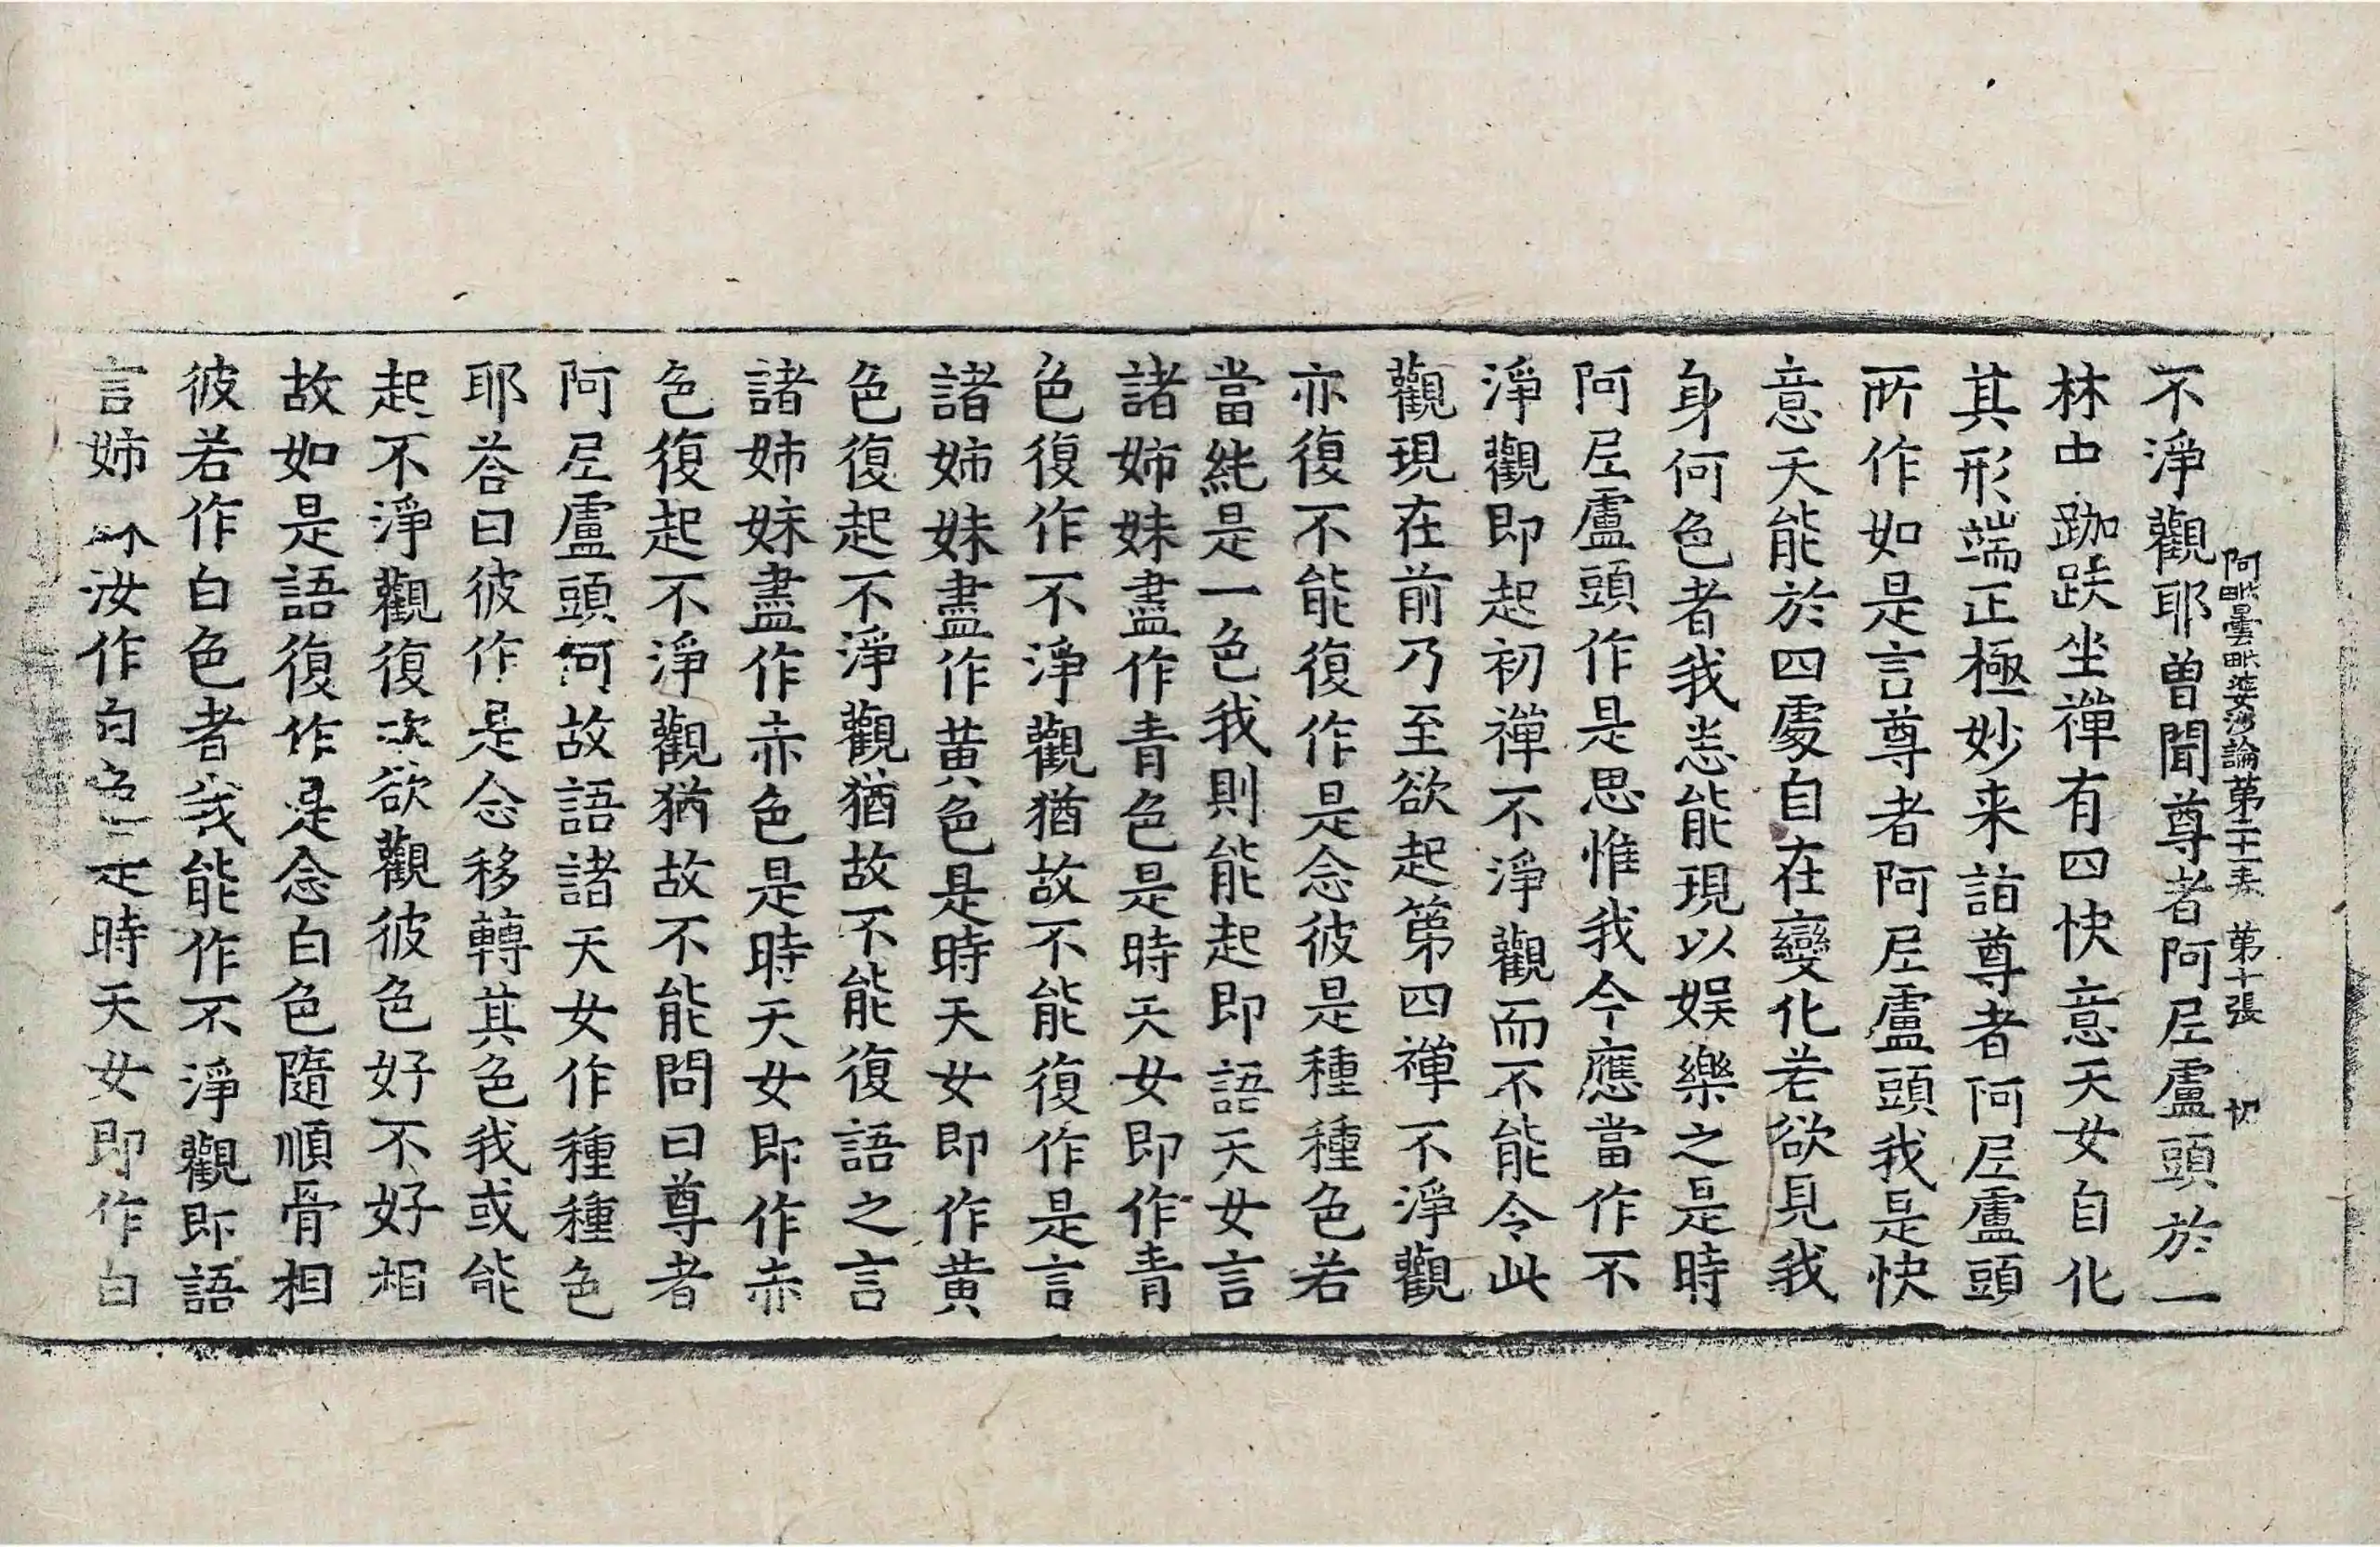 不淨觀耶曾聞尊者阿𡰱盧頭於一
阿毗曇毗婆沙論第二十一卷 第十張 切
林中跏趺坐禪有四快意天女自化
其形端正極妙来詣尊者阿𡰱盧頭
所作如是言尊者阿𡰱盧頭我是快
意天能於四處自在變化若欲見我
身何色者我悉能現以娛樂之是時
阿𡰱盧頭作是思惟我今應當作不
淨觀即起初禪不淨觀而不能令此
觀現在前乃至欲起第四禪不淨觀
亦復不能復作是念彼是種種色若
當純是一色我則能起即語天女言
諸姉妹盡作青色是時天女即作青
色復作不淨觀猶故不能復作是言
諸姉妹盡作黃色是時天女即作黃
色復起不淨觀猶故不能復語之言
諸姉妹盡作赤色是時天女即作赤
色復起不淨觀猶故不能問曰尊者
阿𡰱盧頭何故語諸天女作種種色
耶荅曰彼作是念移轉其色我或能
起不淨觀復次欲觀彼色好不好相
故如是語復作是念白色隨順骨相
彼若作白色者我能作不淨觀即語
言姉妹汝作白色是時天女即作白